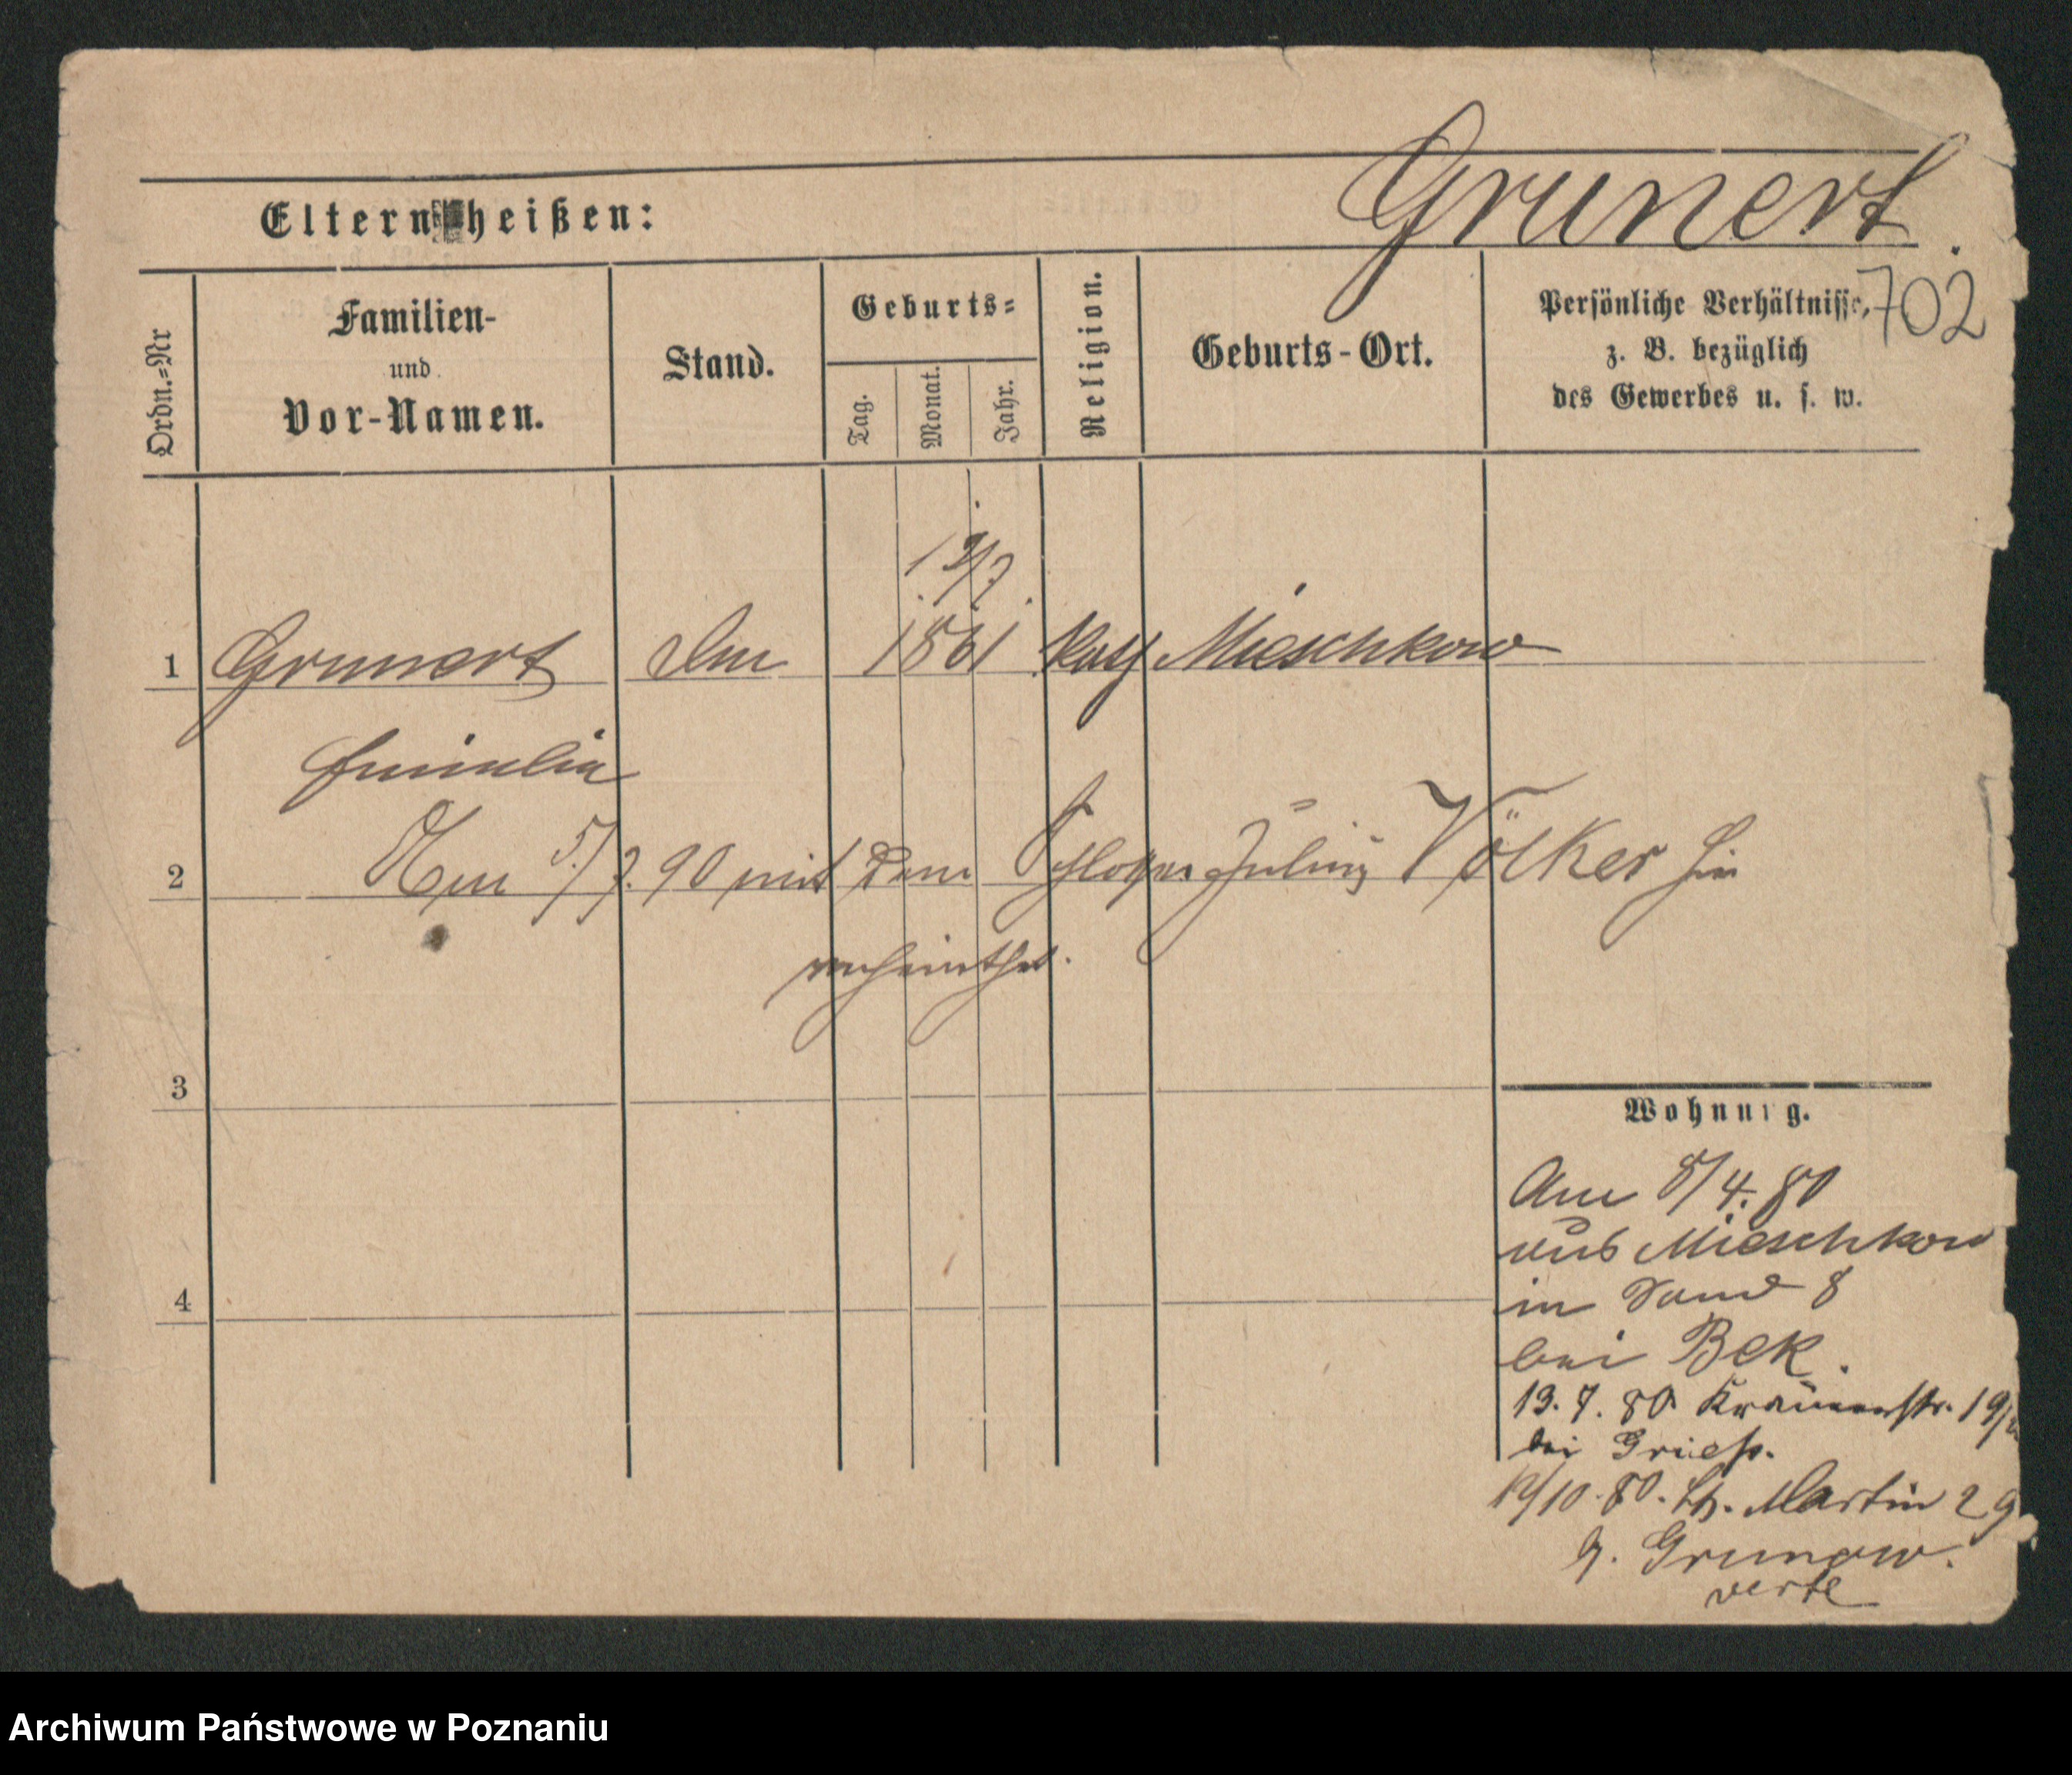 Grunert.
Eltern heißen:
702
Ordn.=Nr
Familien-
und
Vor-Namen.
Stand.
Geburts=
Tag.
Monat.
Jahr.
Religion.
Geburts-Ort.
Persönliche Verhältnisse,
z. B. bezüglich
des Gewerbes u. s. w.
1 Grunert 1861 kath Mieschkow
2 Am 5/7. 90 mit dem Schlosser Julius Völker hier
verheirathet.
3
Wohnung.
4
Am 8/4. 80
aus Mieschkow
in Sand 8
bei Bek.
13. 7. 80 Krämerstr. 19/
bei Grieß.
/10. 80. St. Martin 29.
b. Grunow.
verte
Archiwum Państwowe w Poznaniu